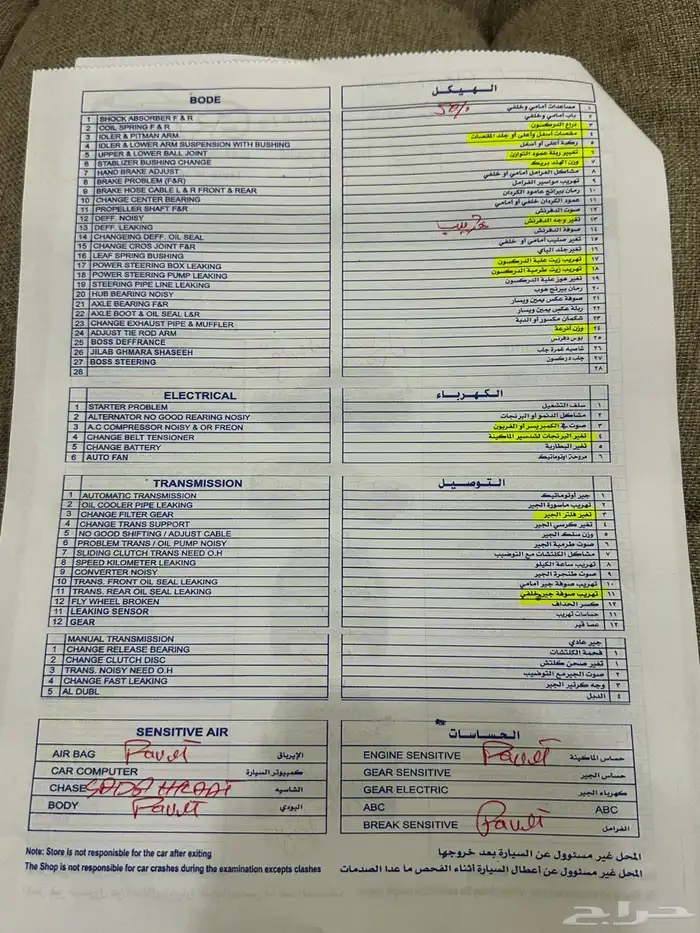 BODE
1 SHOCK ABSORBER F & R
2 COIL SPRING F & R
3 IDLER & PITMAN ARM.
4 IDLER & LOWER ARM SUSPENSION WITH BUSHING
5 UPPER & LOWER BALL JOINT
6 STABLIZER BUSHING CHANGE
7 HAND BRAKE ADJUST
8 BRAKE PROBLEM (F&R)
9 BRAKE HOSE CABLE L & R FRONT & REAR
10 CHANGE CENTER BEARING
11 PROPELLER SHAFT F&R
12 DEFF. NOISY
13 DEFF. LEAKING
14 CHANGEING DEFF. OIL SEAL
15 CHANGE CROS JOINT F&R
16 LEAF SPRING BUSHING
17 POWER STEERING BOX LEAKING
18 POWER STEERING PUMP LEAKING
19 STEERING PIPE LINE LEAKING
20 HUB BEARING NOISY
21 AXLE BEARING F&R
22 AXLE BOOT & OIL SEAL L&R
23 CHANGE EXHAUST PIPE & MUFFLER
24 ADJUST TIE ROD ARM
25 BOSS DEFFRANCE
26 JILAB GHMARA SHASEEH
27 BOSS STEERING
28
الـهـيـكـل
مساعدات امامي وخلفي ١
50%
ياب امامي وخلفي ٢
ذراع الدركسون ٣
مقصات أسفل وأعلى أو جلد المقصات ٤
ركبة أعلى أو أسفل ٥
تغيير ربلة عمود التوازن ٦
وزن الهند بريك ٧
مشاكل الفرامل أمامي أو خلفي ٨
تهريب مواسير الفرامل ٩
رمان بيرنج عامود الكردان ١٠
عمود الكردان خلفي أو أمامي ١١
صوت الدفرنش ١٢
تغير وجه الدفرنش ١٣
تهريب
صوفة الدفرنش ١٤
تغير صليب أمامي أو خلفي ١٥
تغير جلد الياي ١٦
تهريب زيت علبة الدركسون ١٧
تهريب زيت طرمبة الدركسون ١٨
تغير هوز علبة الدركسون ١٩
رمان بيرنج هوب ٢٠
صوفة عكس يمين ويسار ٢١
ربلة عكس يمين ويسار ٢٢
شكمان مكسور أو الدبة ٢٣
وزن أذرعة ٢٤
بوش دفرنس ٢٥
شاصيه غمرة جلب ٢٦
جلب دركسون ٢٧
٢٨
ELECTRICAL
1 STARTER PROBLEM
2 ALTERNATOR NO GOOD REARING NOSIY
3 A.C COMPRESSOR NOISY & OR FREON
4 CHANGE BELT TENSIONER
5 CHANGE BATTERY
6 AUTO FAN
الـكـهـربـاء
سلف التشغيل ١
مشاكل الدنمو أو البرنجات ٢
صوت في الكمبريسر أو الفريون ٣
تغير البرنجات لشدسير الماكينة ٤
تغير البطارية ٥
مروحة اوتوماتيك ٦
TRANSMISSION
1 AUTOMATIC TRANSMISSION
2 OIL COOLER PIPE LEAKING
3 CHANGE FILTER GEAR
4 CHANGE TRANS SUPPORT
5 NO GOOD SHIFTING / ADJUST CABLE
6 PROBLEM TRANS / OIL PUMP NOISY
7 SLIDING CLUTCH TRANS NEED O.H
8 SPEED KILOMETER LEAKING
9 CONVERTER NOISY
10 TRANS. FRONT OIL SEAL LEAKING
11 TRANS. REAR OIL SEAL LEAKING
12 FLY WHEEL BROKEN
11 LEAKING SENSOR
12 GEAR
MANUAL TRANSMISSION
1 CHANGE RELEASE BEARING
2 CHANGE CLUTCH DISC
3 TRANS. NOISY NEED O.H
4 CHANGE FAST LEAKING
5 AL DUBL
الـتـوصـيـل
جير أوتوماتيك ١
تهريب ماسورة الجير ٢
تغير فلتر الجير ٣
تغير كرسي الجير ٤
وزن سلك الجير ٥
صوت طرمبة الجير ٦
مشاكل الكلتشات مع التوضيب ٧
تهريب ساعة الكيلو ٨
صوت طنجرة الجير ٩
تهريب صوفة جير أمامي ١٠
تهريب صوفة جير خلفي ١١
كسر الحداف ١٢
حساسات تهريب ١١
عصا قير ١٢
جير عادي
فحمة الكلتشات ١
تغير صحن كلتش ١
صوت الجير مع التوضيب ٢
وجه كرتير الجير ٣
الدبل ٤
SENSITIVE AIR
AIR BAG الإيرباق
CAR COMPUTER كمبيوتر السيارة
CHASE الشاسيه
BODY البودي
الـحـسـاسـات
ENGINE SENSITIVE حساس الماكينة
GEAR SENSITIVE حساس الجير
GEAR ELECTRIC كهرباء الجير
ABC ABC
BREAK SENSITIVE الفرامل
Note: Store is not responisble for the car after exiting
The Shop is not responsible for car crashes during the examination excepts clashes
المحل غير مسئوول عن السيارة بعد خروجها
المحل غير مسئوول عن أعطال السيارة أثناء الفحص ما عدا الصدمات
حراج